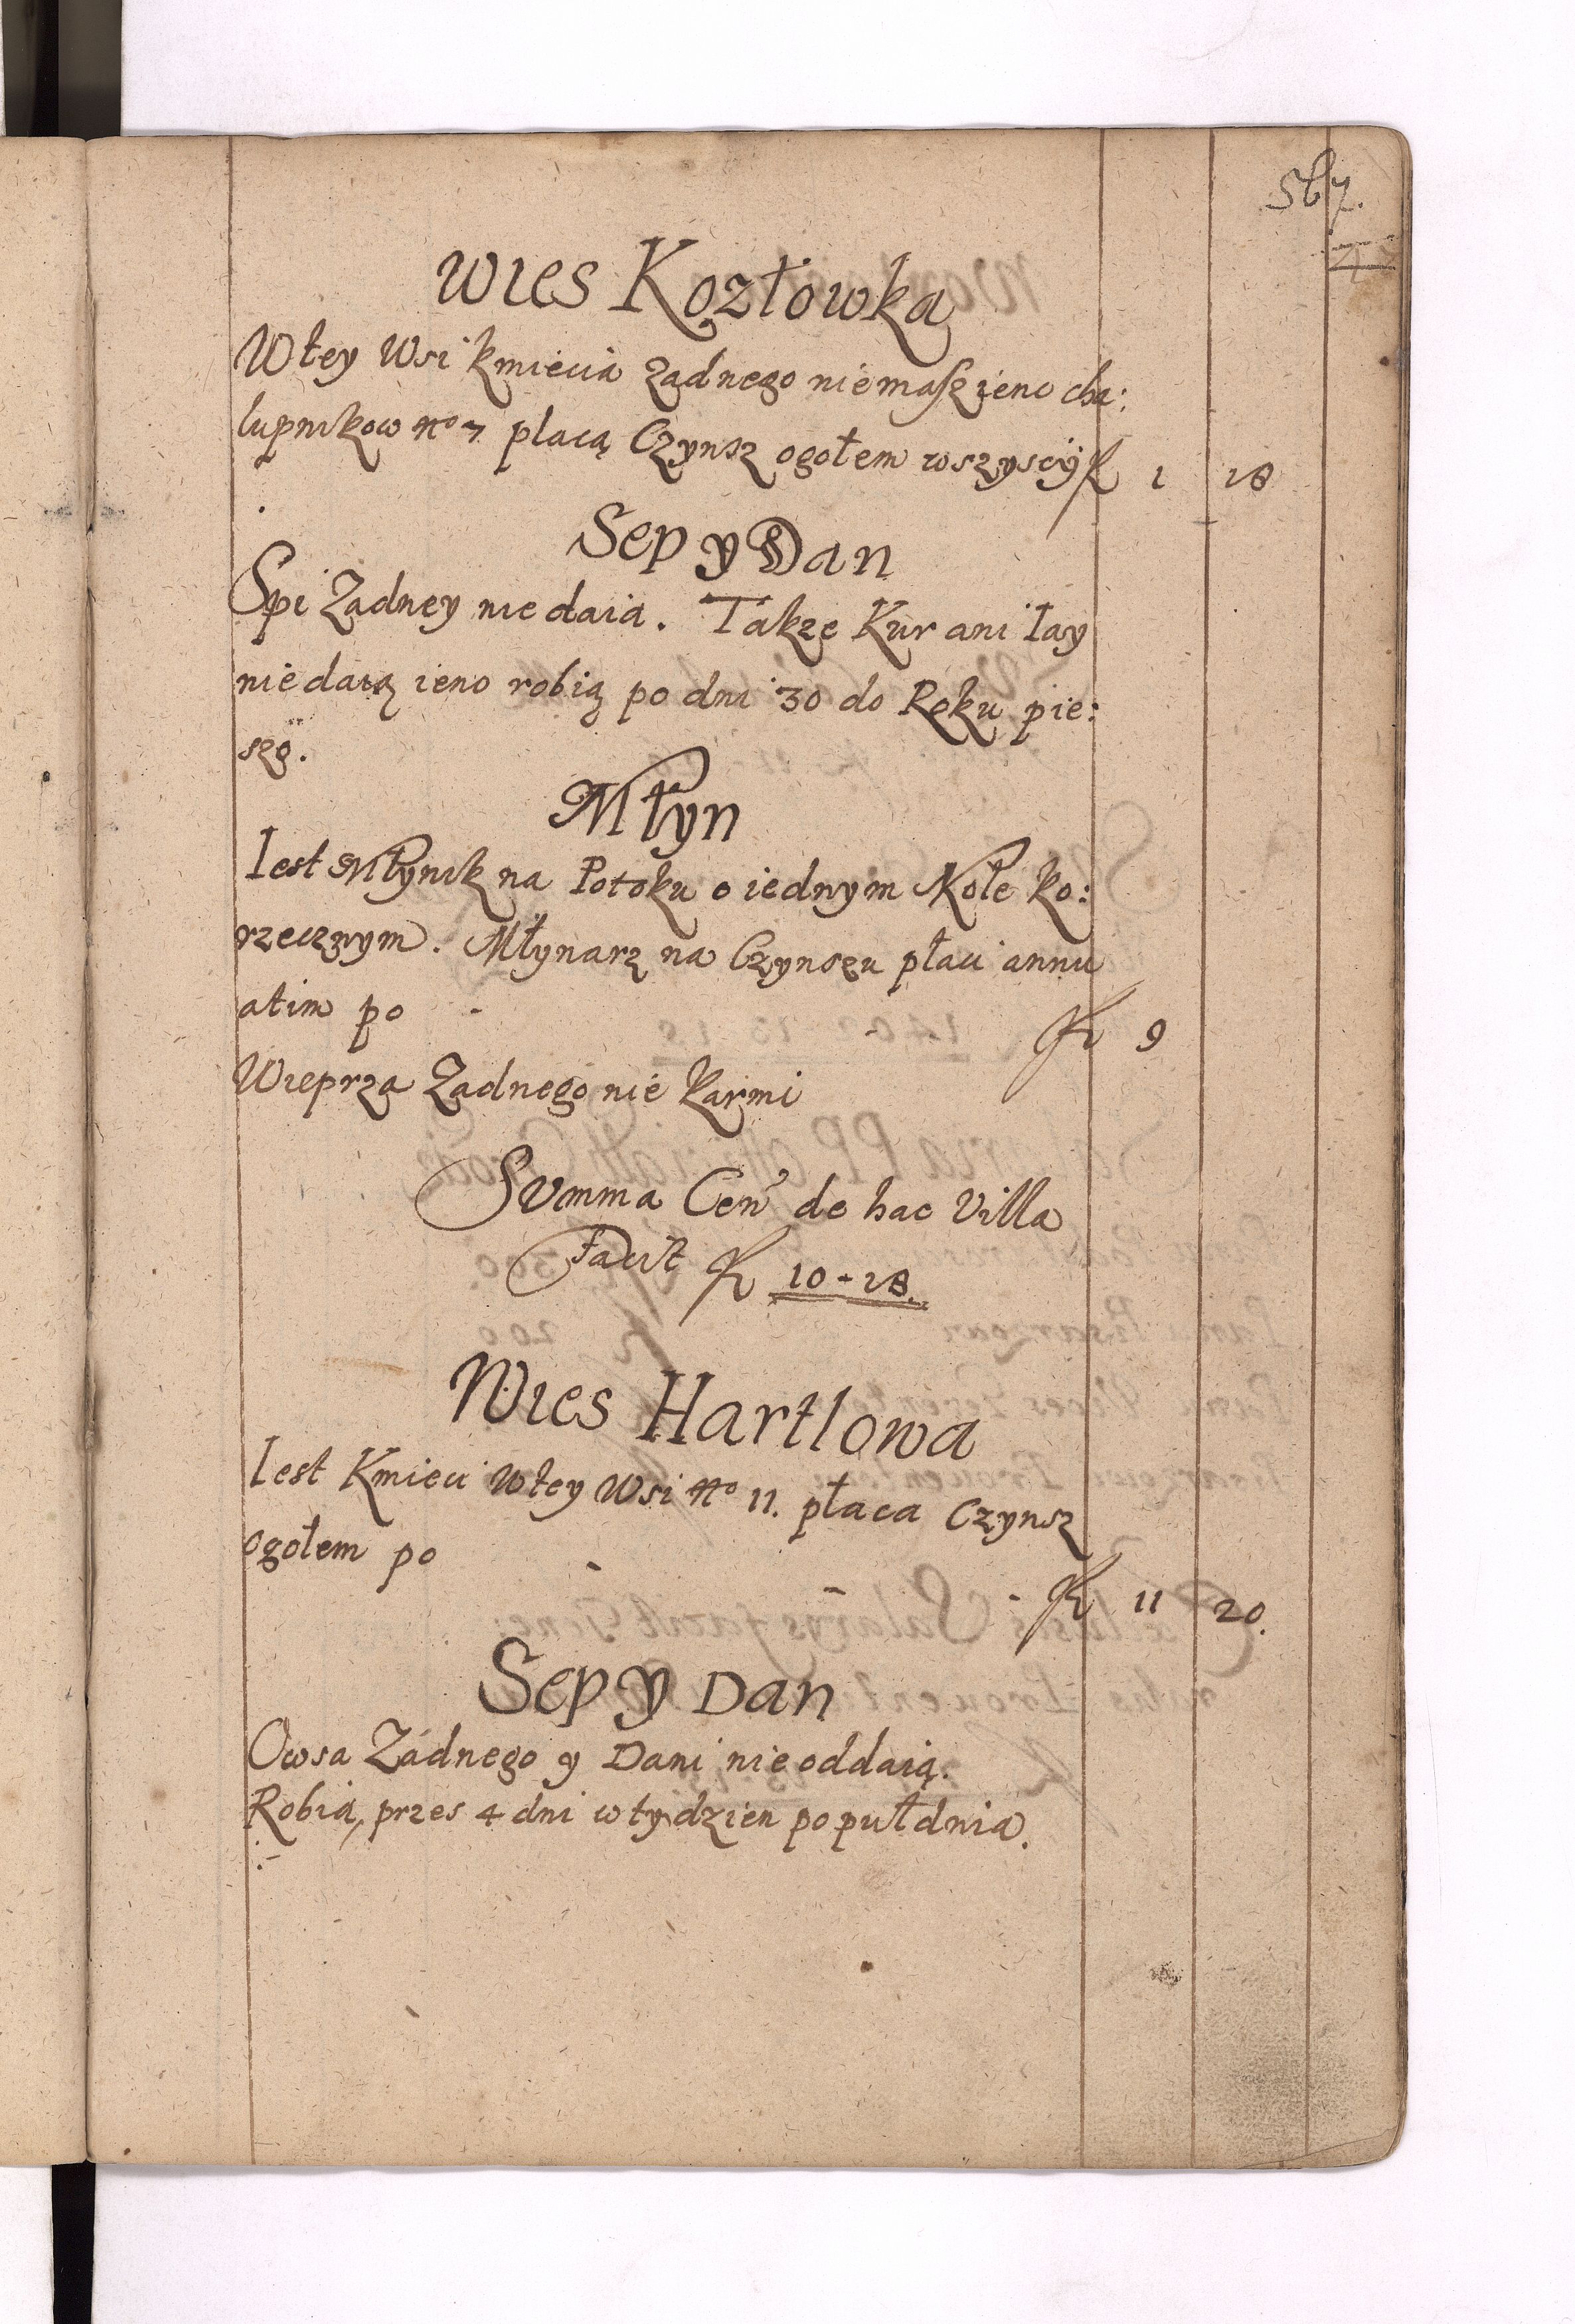 567.
Wies Kozłowka
W tey Wsi kmiecia Zadnego niemasz ieno cha:
lupnikow No 7 placą Czynsz ogołem wszyscÿ fl 1 18
Sep y Dan
Spi Zadney nie daia. Takze Kur ani Iay
nie daią ieno robią po dni 30 do Roku pie:
szo.
Młyn
Iest Młynik na Potoku o iednym Kole ko:
rzecznym. Młynarz na Czynszu płaci annu
atim po - - fl 9
Wieprza Zadnego nie karmi
Summa Cen' de hac Villa
Facit fl 10-18.
Wies Hartlowa
Iest Kmieci w tey Wsi No 11. płaca Czynsz
ogołem po - - - fl 11 20.
Sep y Dan
Owsa Zadnego y Dani nie oddaią.
Robia, przes 4 dni w tydzien po puł dnia.